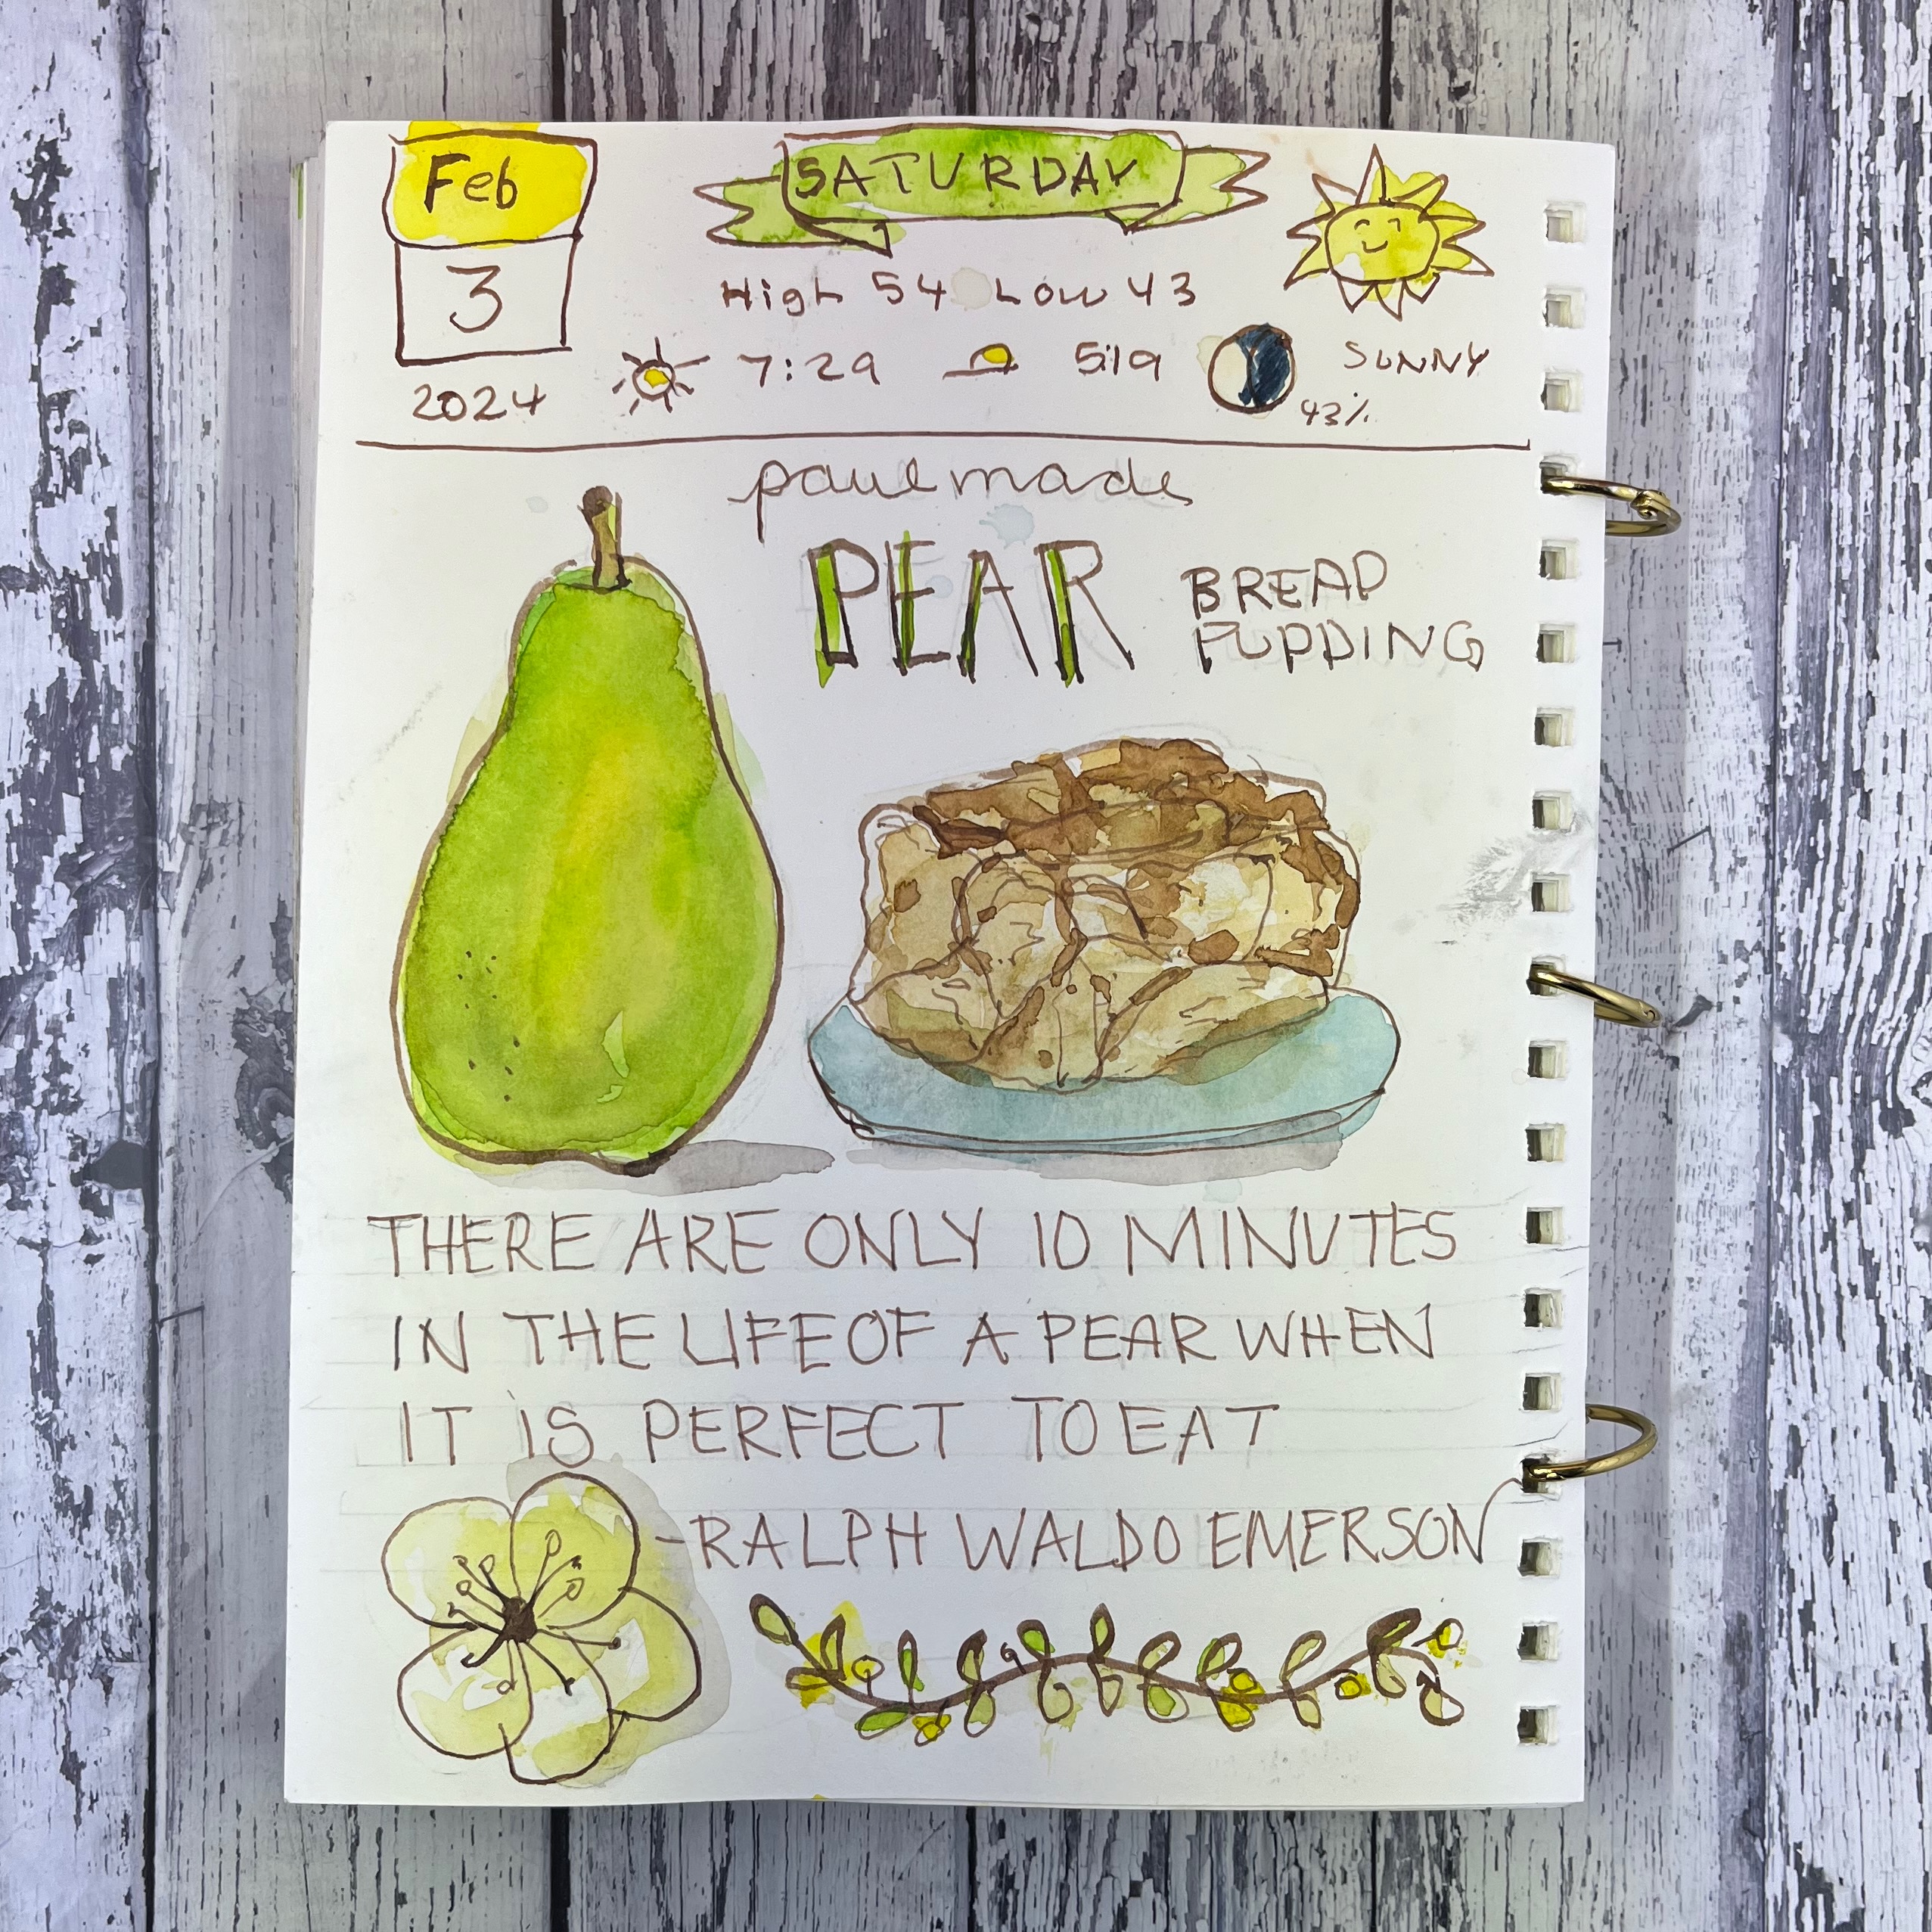 Feb
3
2024
SATURDAY
High 54 Low 43
7:29 5:19 43% SUNNY
paul made
PEAR BREAD
PUDDING
THERE ARE ONLY 10 MINUTES
IN THE LIFE OF A PEAR WHEN
IT IS PERFECT TO EAT
-RALPH WALDO EMERSON